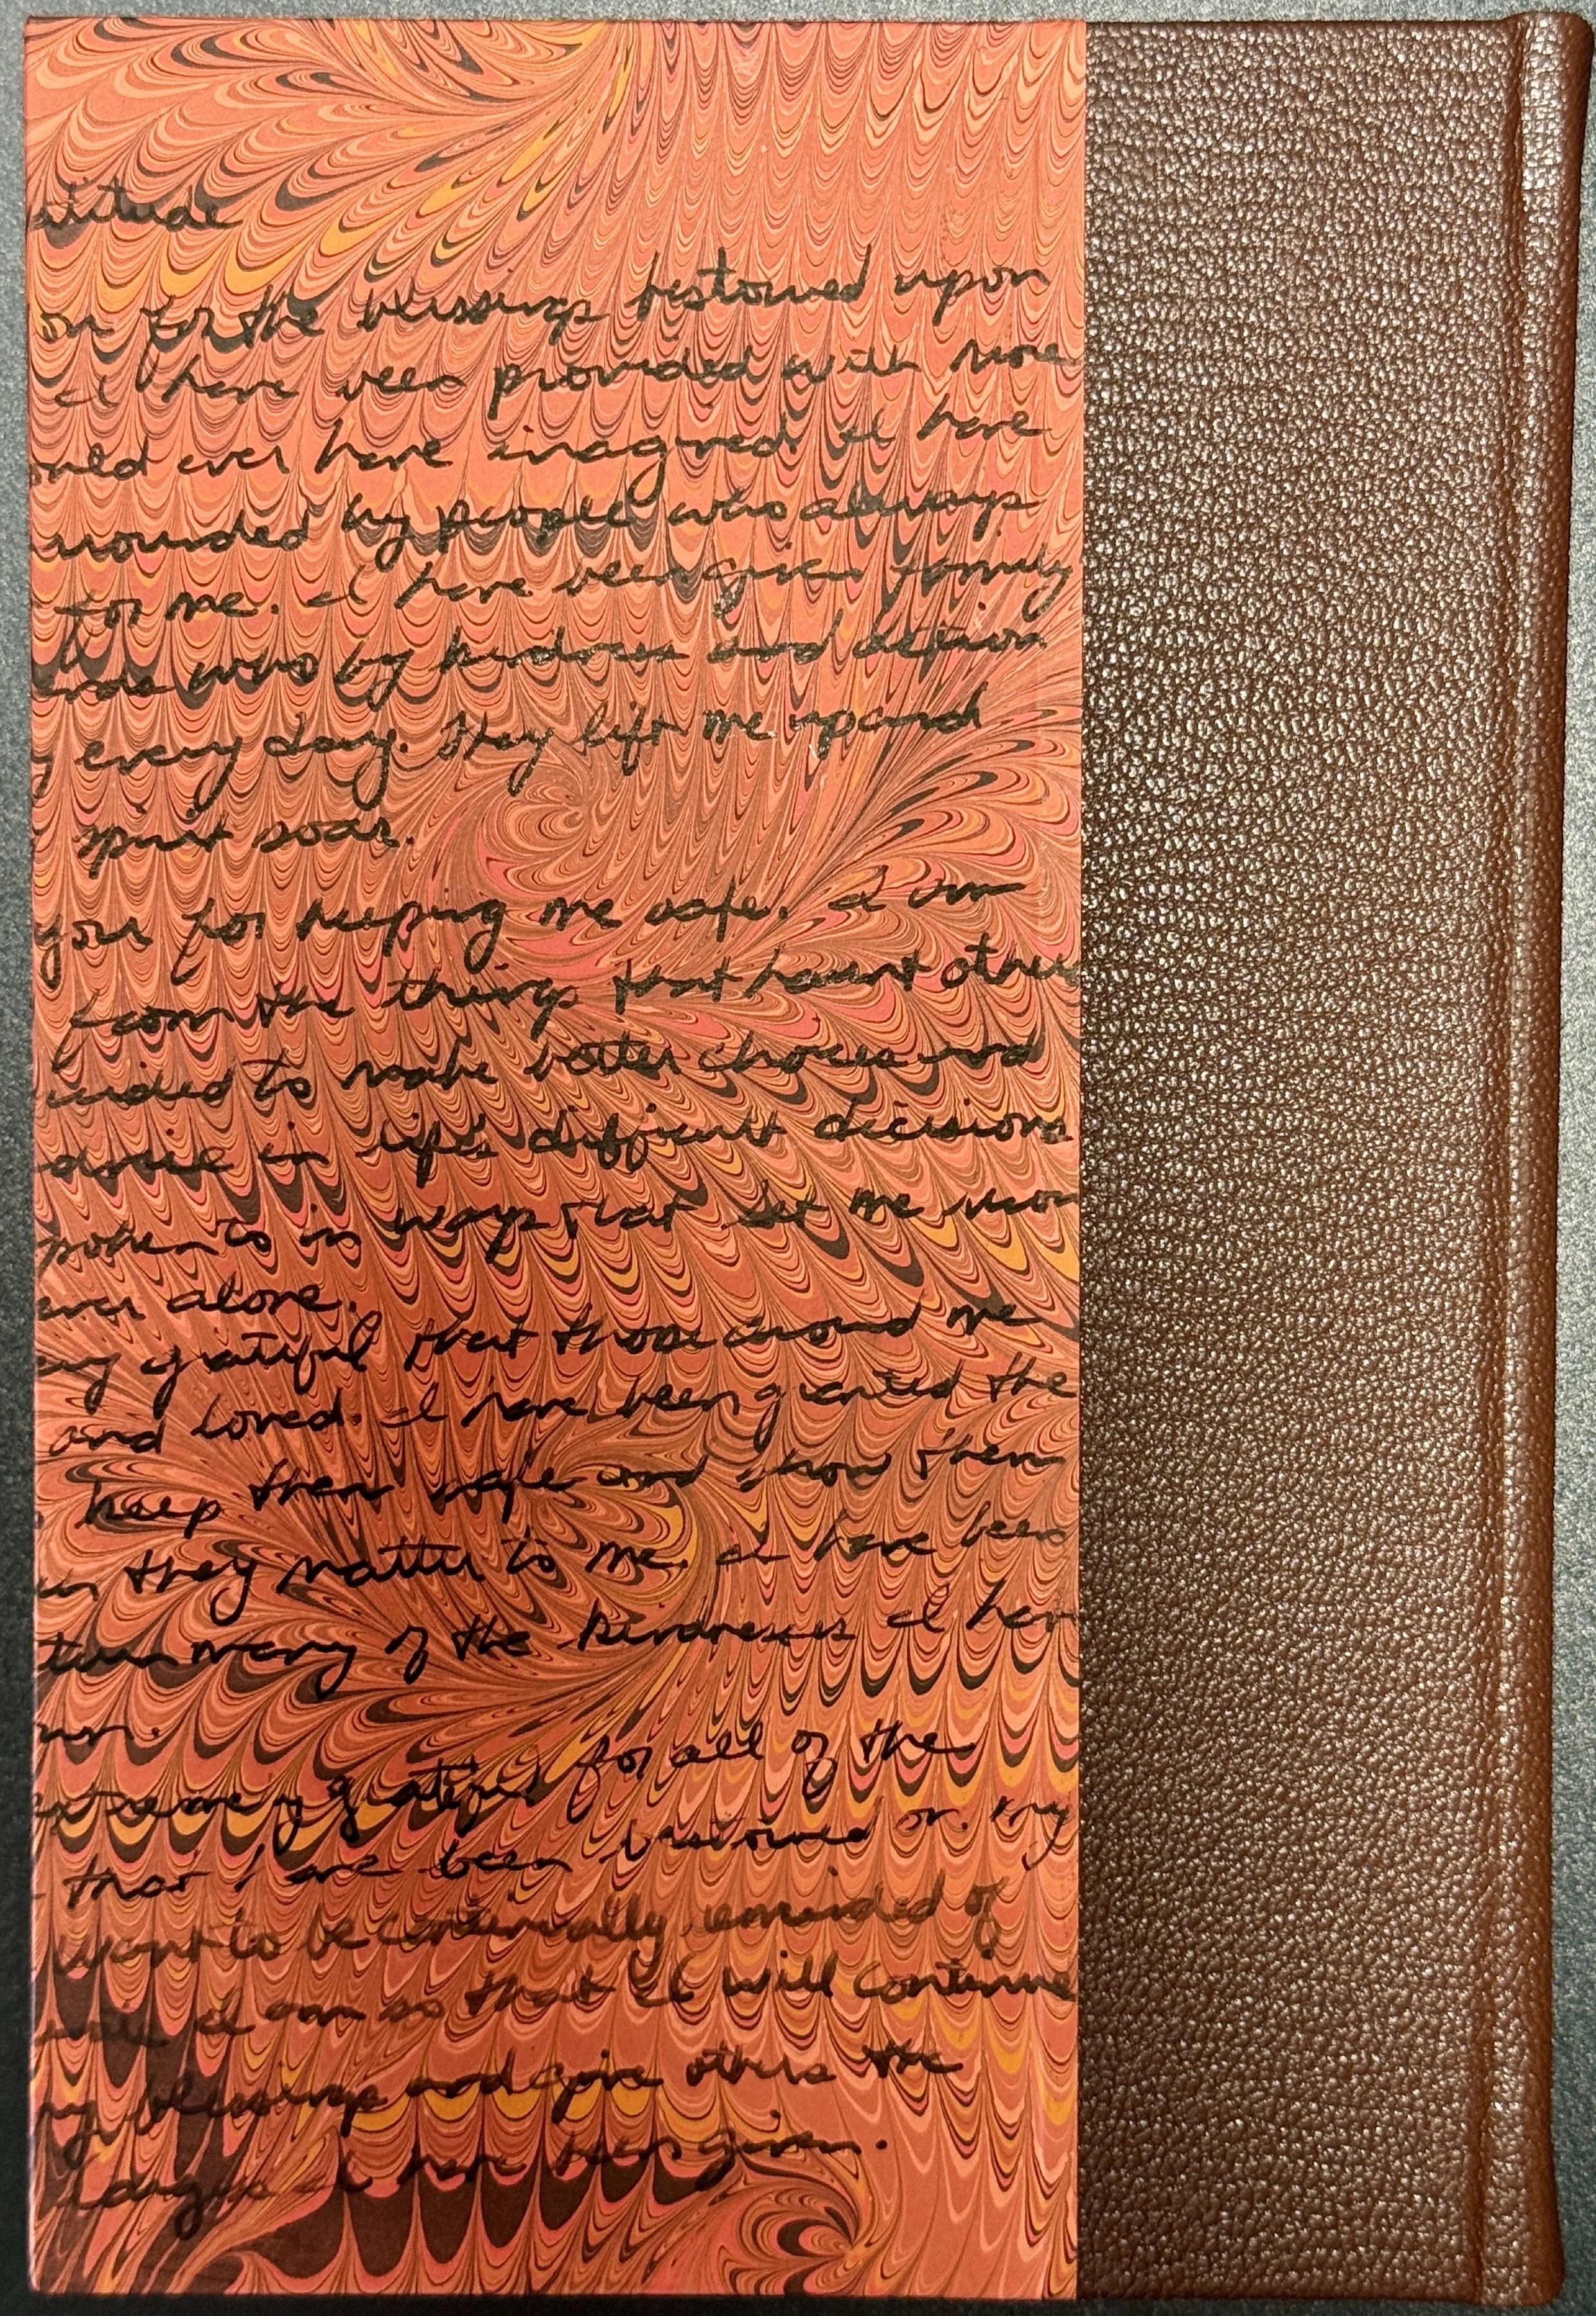 atitude
on for the blessings bestowed upon
I have been provided with more
ould ever have imagined I have
rrounded by people who always
for me. I have been given family
who by kindness and action
y every day. They lift me up and
spirit soar.
you for keeping me safe. I am
from the things that haunt other
uided to make better choices and
in life's difficult decisions
spoken to in ways that let me know
ever alone.
grateful that those around me
and loved. I have been granted the
keep them safe and show them
they matter to me. I have been
turn many of the kindnesses I have
wn.
extremely grateful for all of the
that have been bestowed on my
want to be continually reminded of
I am so that I will continue
my blessings and give others the
I have been given.